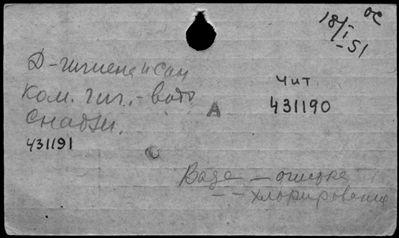 18/I-51 ОС
Д-гигиена и сан
Ком. гиг.-водо
снабж.
431191
А
Чит
431190
Вода — очистка
— — хлорирование